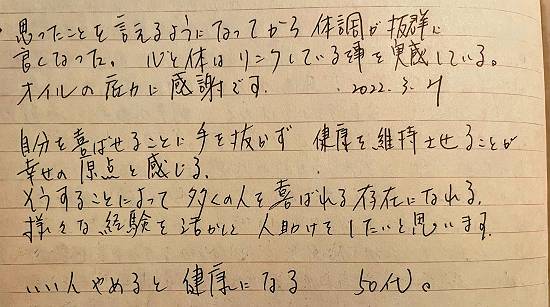 思ったことを言えるようになってから 体調が抜群に
良くなった。 心と体はリンクしている事を実感している。
オイルの底力に感謝です。 2022.3.
自分を喜ばせることに手を抜かず 健康を維持させることが
幸せの原点と感じる。
そうすることによって 多くの人を喜ばれる存在になれる。
様々な経験を活かして 人助けをしたいと思います。
いい人やめると健康になる 50代。